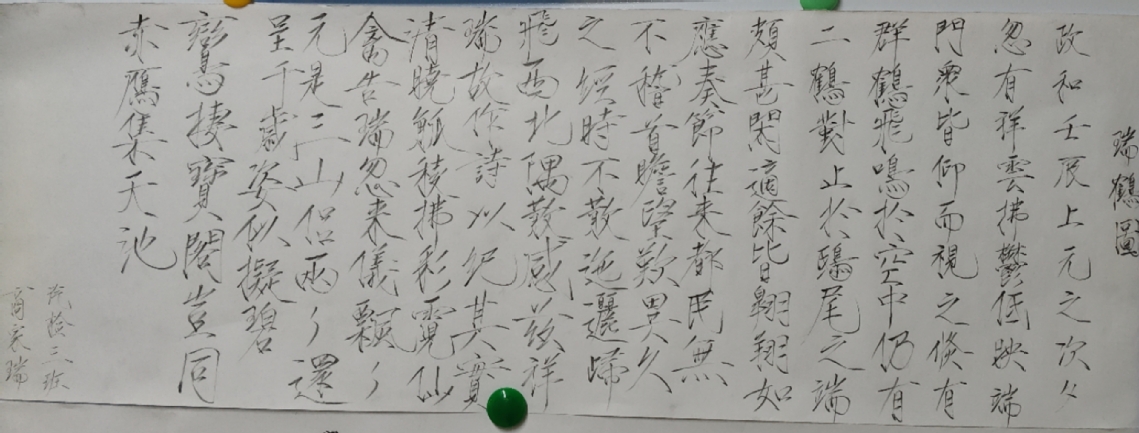 瑞鶴圖
政和壬辰上元之次夕
忽有祥雲拂鬱低映端
門衆皆仰而視之倏有
群鶴飛鳴於空中仍有
二鶴對止於鴟尾之端
頗甚閑適餘皆翱翔如
應奏節往来都民無
不稽首瞻望歎異久
之經時不散迤邐歸
飛西北隅散感茲祥
瑞故作詩以紀其實
清曉觚稜拂彩霓仙
禽告瑞忽来儀飄々
元是三山侣兩々還
呈千歲姿似擬碧
鸞棲寶閣豈同
赤鴈集天池
汽检三班
商宏瑞